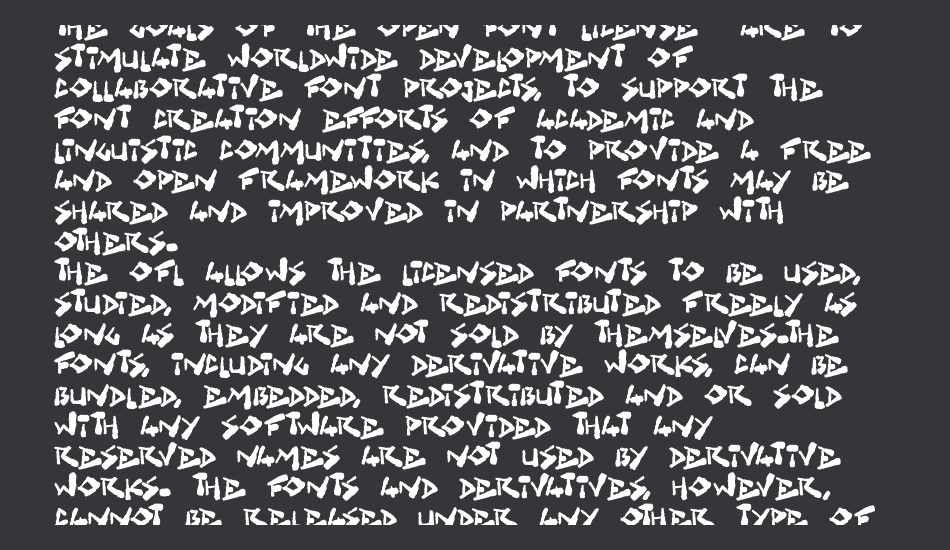 THE GOALS OF THE OPEN FONT LICENSE ARE TO
STIMULATE WORLDWIDE DEVELOPMENT OF
COLLABORATIVE FONT PROJECTS, TO SUPPORT THE
FONT CREATION EFFORTS OF ACADEMIC AND
LINGUISTIC COMMUNITIES, AND TO PROVIDE A FREE
AND OPEN FRAMEWORK IN WHICH FONTS MAY BE
SHARED AND IMPROVED IN PARTNERSHIP WITH
OTHERS.
THE OFL ALLOWS THE LICENSED FONTS TO BE USED,
STUDIED, MODIFIED AND REDISTRIBUTED FREELY AS
LONG AS THEY ARE NOT SOLD BY THEMSELVES.THE
FONTS, INCLUDING ANY DERIVATIVE WORKS, CAN BE
BUNDLED, EMBEDDED, REDISTRIBUTED AND OR SOLD
WITH ANY SOFTWARE PROVIDED THAT ANY
RESERVED NAMES ARE NOT USED BY DERIVATIVE
WORKS. THE FONTS AND DERIVATIVES, HOWEVER,
CANNOT BE RELEASED UNDER ANY OTHER TYPE OF